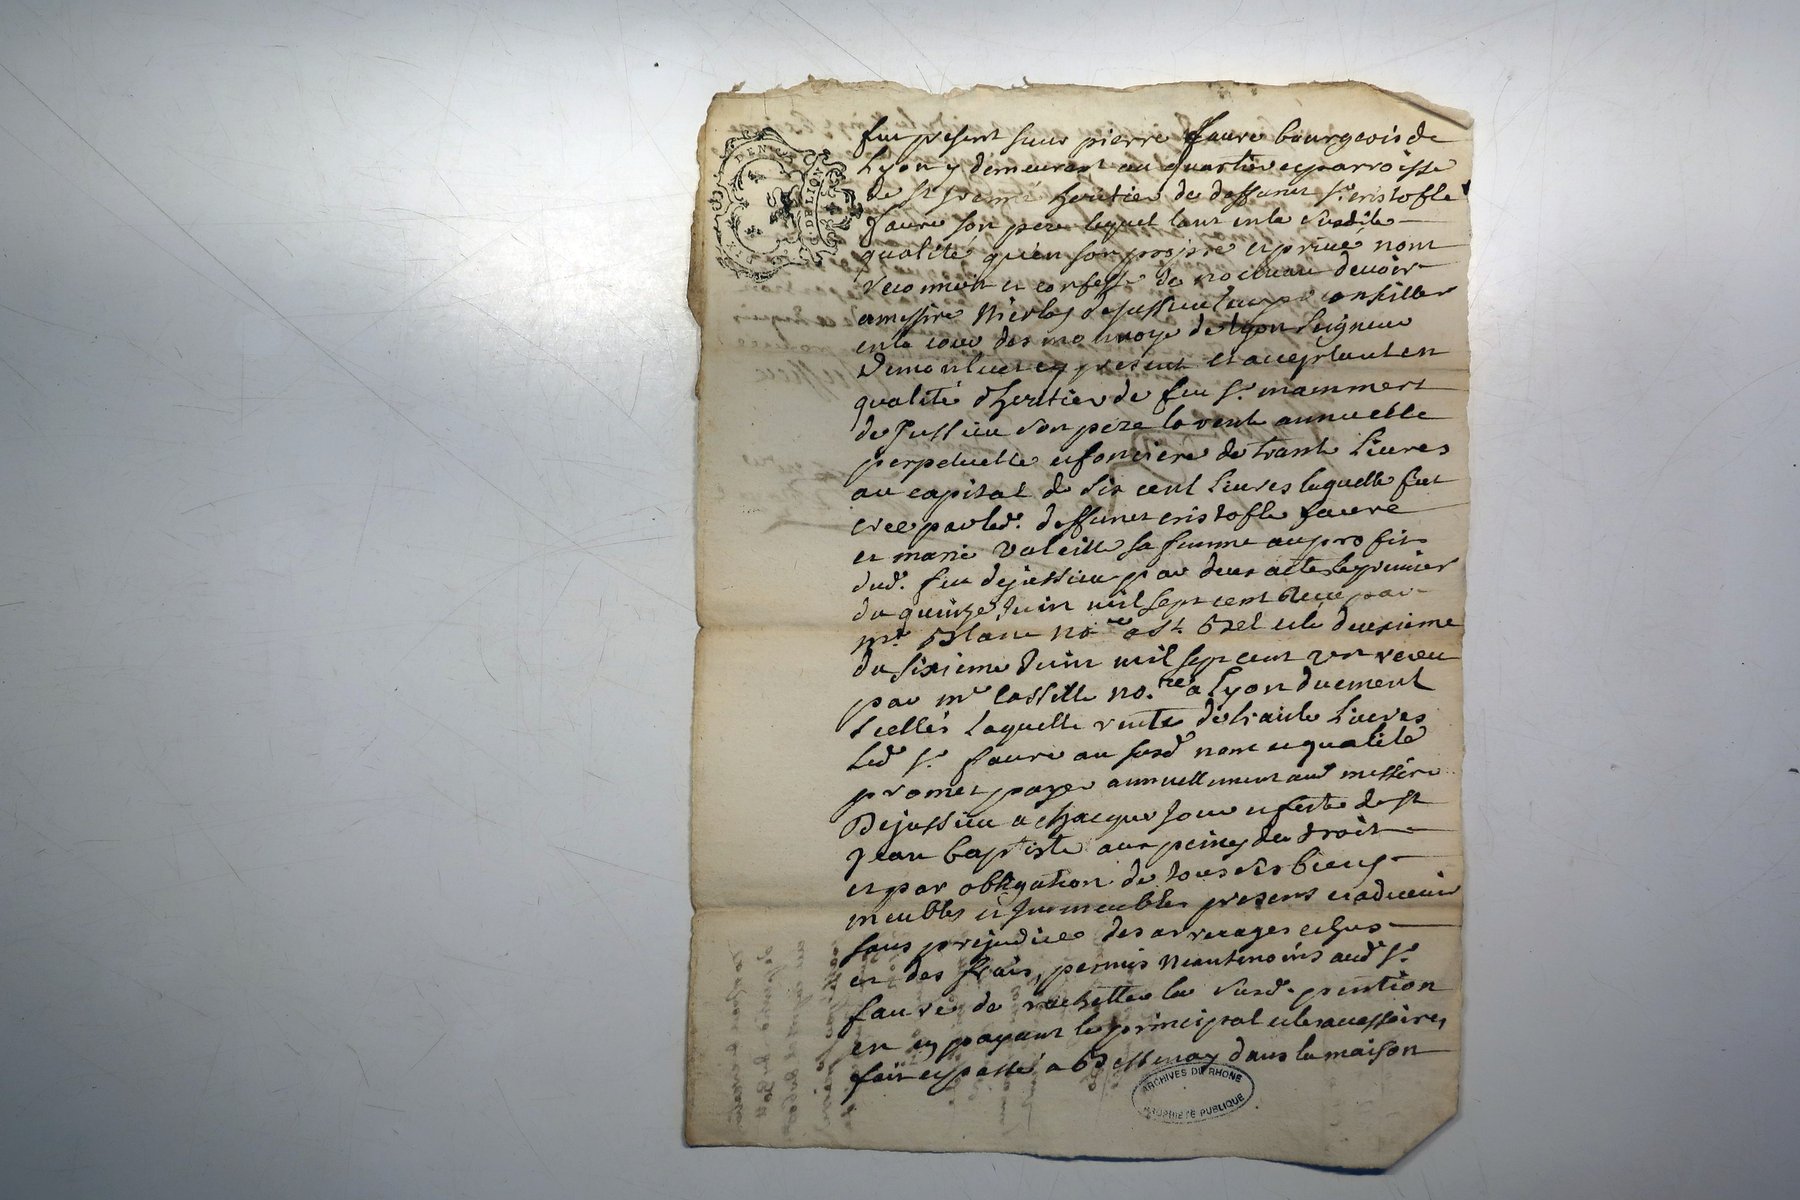 DEN
G. DE LION
fut present sieur pierre faure bourgeois de
Lyon y demeurant au quartier et parroisse
de st heritier de deffunt sr cristofle
faure son pere lequel tant en la susditte
qualité qu'en son propre et privé nom
reconnoit et confesse de nouveau devoir
a messire Nicolas dejussieu conseiller
en la cour des monnoye de Lyon seigneur
Demonluel cy present et acceptant en
qualité d'heritier de feu sr mammert
de Jussieu son pere la rente annuelle
perpetuelle et fonciere de trante Livres
au capital de six cent Livres laquelle fut
cree par led. deffunt cristofle faure
et marie Valeille sa femme au profit
dud. feu dejussieu par deux actes le premier
du quinze Juin mil sept cent par
me Blanc nore a st Bel et le deuxieme
du sixieme Juin mil sept cent vu receu
par me nore a Lyon duement
scellés Laquelle rente de trante Livres
Led sr faure au susd nom et qualité
promet payer annuellement aud messire
Dejussieu a chacque Jour et feste de st
Jean baptiste aux peines du droit
et par obligation de tous ses biens
meubles et Immeubles presents et advenir
sans prejudice des arrerages echus
et des frais, permis neantmoins aud sr
faure de rachetter la susd. pention
en en payant le principal et les accessoires
fait et passé a Bessenay dans la maison
ARCHIVES DU RHONE
PROPRIÉTÉ PUBLIQUE